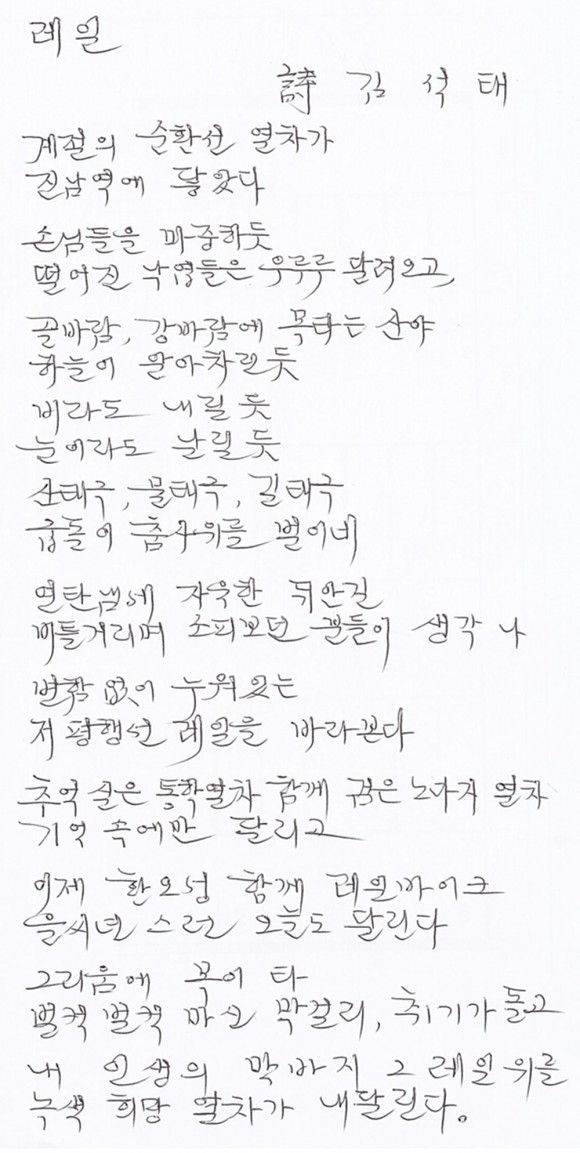 레일
詩 김석태
계절의 순환선 열차가
진남역에 닿았다
손님들을 마중하듯
떨어진 낙엽들은 우루루 달려오고,
골바람, 강바람에 목타는 산야
하늘이 알아차린 듯
비라도 내릴 듯
눈이라도 날릴 듯
산태극, 물태극, 길태극
춤사위를 벌이네
연탄냄새 자욱한 뒤안길
비틀거리며 소피보던 꾼들이 생각나
변함 없이 누워있는
저 평행선 레일을 바라본다
추억 실은 통학열차 함께 꿈은 노다지 열차
기억 속에만 달리고
이제 환호성 함께 레일바이크
을씨년 스런 오늘도 달린다
그리움에 목이 타
벌컥 벌컥 마신 막걸리, 취기가 돌고
내 인생의 막바지 그 레일 위를
녹색 희망 열차가 내달린다.